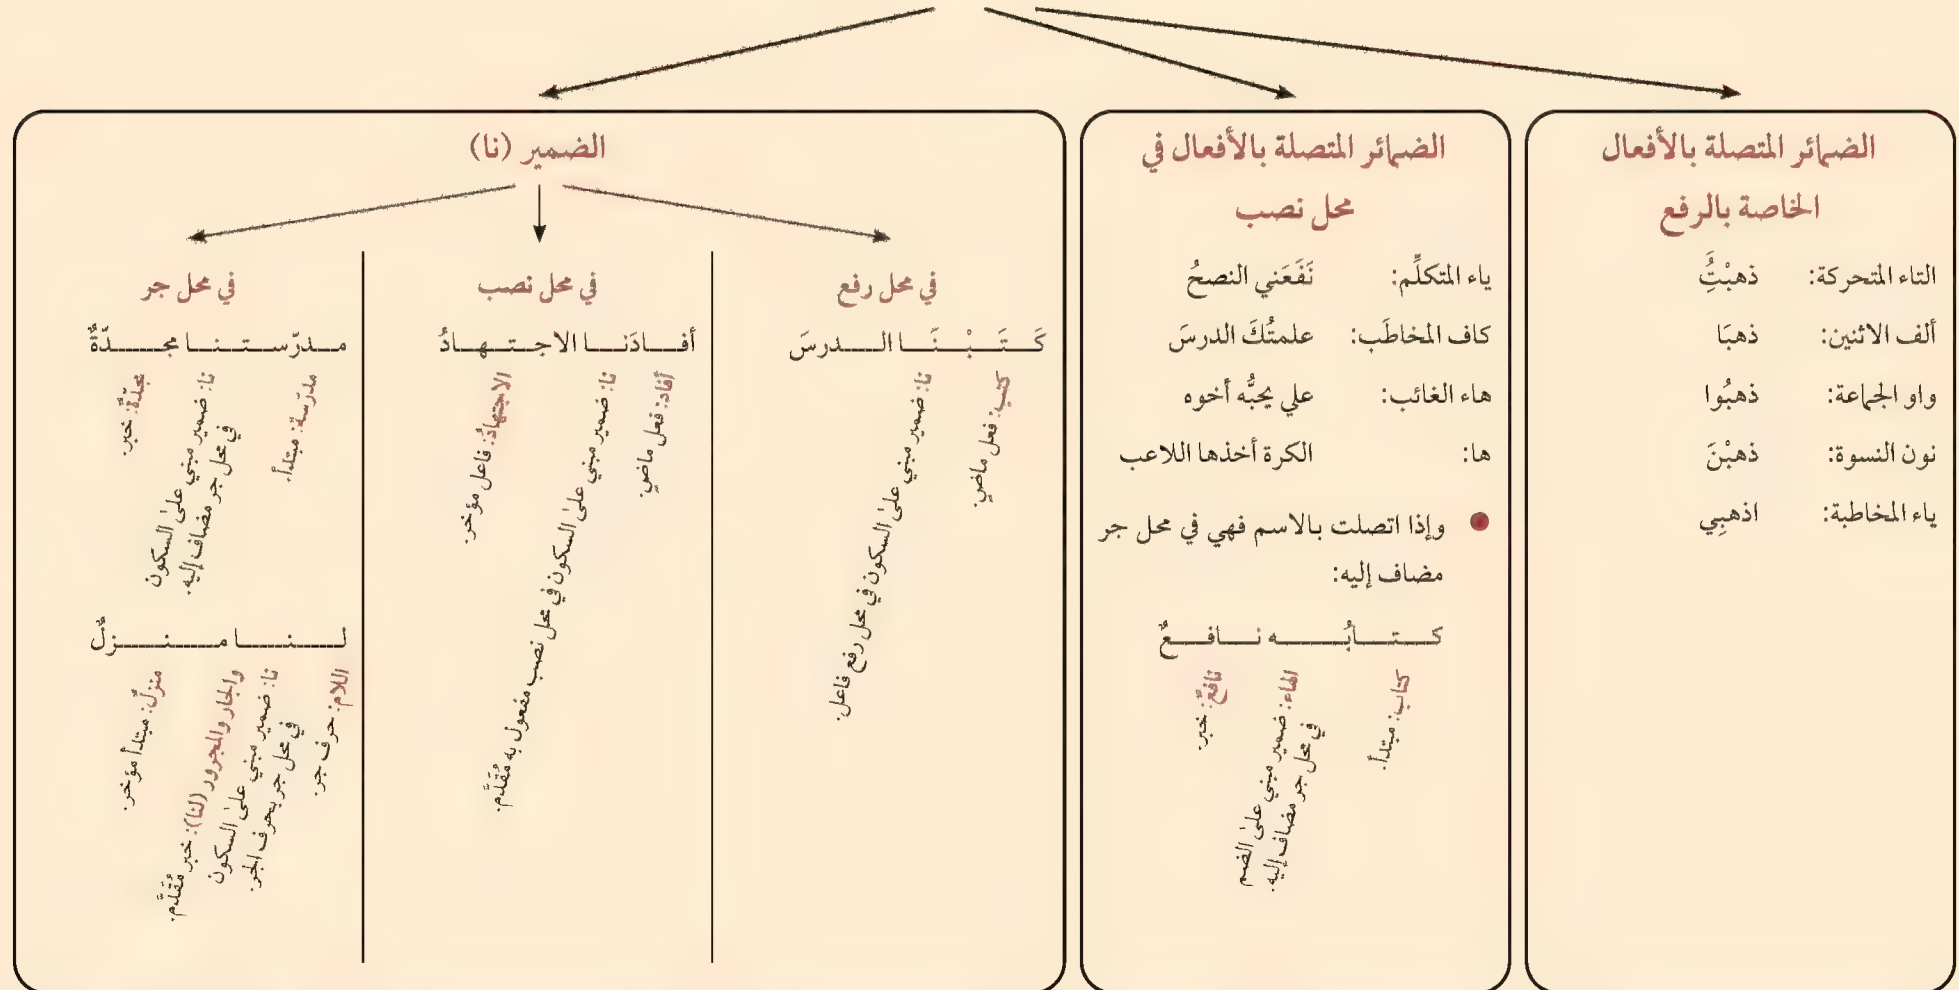 الضمائر المتصلة بالأفعال
الخاصة بالرفع
التاء المتحركة: ذهبْتَُِ
ألف الاثنين: ذهبَا
واو الجماعة: ذهبُوا
نون النسوة: ذهبْنَ
ياء المخاطبة: اذهبِي
الضمائر المتصلة بالأفعال في
محل نصب
ياء المتكلِّم: نَفَعَني النصحُ
كاف المخاطَب: علمتُكَ الدرسَ
هاء الغائب: علي يحبُّه أخوه
ها: الكرة أخذها اللاعب
وإذا اتصلت بالاسم فهي في محل جر
مضاف إليه:
كتابُه نافعٌ
كتاب: مبتدأ.
الهاء: ضمير مبني على الضم
في محل جر مضاف إليه.
نافعٌ: خبر.
الضمير (نا)
في محل رفع
كَتَبْنَا الدرسَ
كتب: فعل ماضي.
نا: ضمير مبني على السكون في محل رفع فاعل.
في محل نصب
أفادَنا الاجتهادُ
أفاد: فعل ماضي.
نا: ضمير مبني على السكون في محل نصب مفعول به مُقَدَّم.
الاجتهادُ: فاعل مؤخر.
في محل جر
مدرّستنا مجدّةٌ
مدرّسة: مبتدأ.
نا: ضمير مبني على السكون
في محل جر مضاف إليه.
مجدّةٌ: خبر.
لنا منزلٌ
اللام: حرف جر.
نا: ضمير مبني على السكون
في محل جر بحرف الجر.
والجار والمجرور (لنا): خبر مُقَدَّم.
منزلٌ: مبتدأ مؤخر.